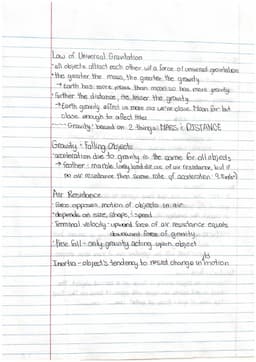 Law of Universal Gravitation
• all objects attract each other w/ a force of universal gravitation
• the greater the mass, the greater the gravity
→ Earth has more mass than moon so has more gravity
• further the distance, the lesser the gravity
→ Earth gravity affect us more b/c we're close. Moon far but
close enough to affect tides
Gravity: based on 2 things: MASS & DISTANCE
Gravity + Falling Objects
• acceleration due to gravity is the same for all objects
→ feather + marble likely land bc of air resistance, but if
no air resistance then same rate of acceleration 9.8m/s²)
Air Resistance
• Force opposes motion of objects in air
• depends on size, shape, speed
• Terminal velocity - upward force of air resistance equals
downward force of gravity
• Free fall - only gravity acting upon object
Inertia - object's tendency to resist change in its motion